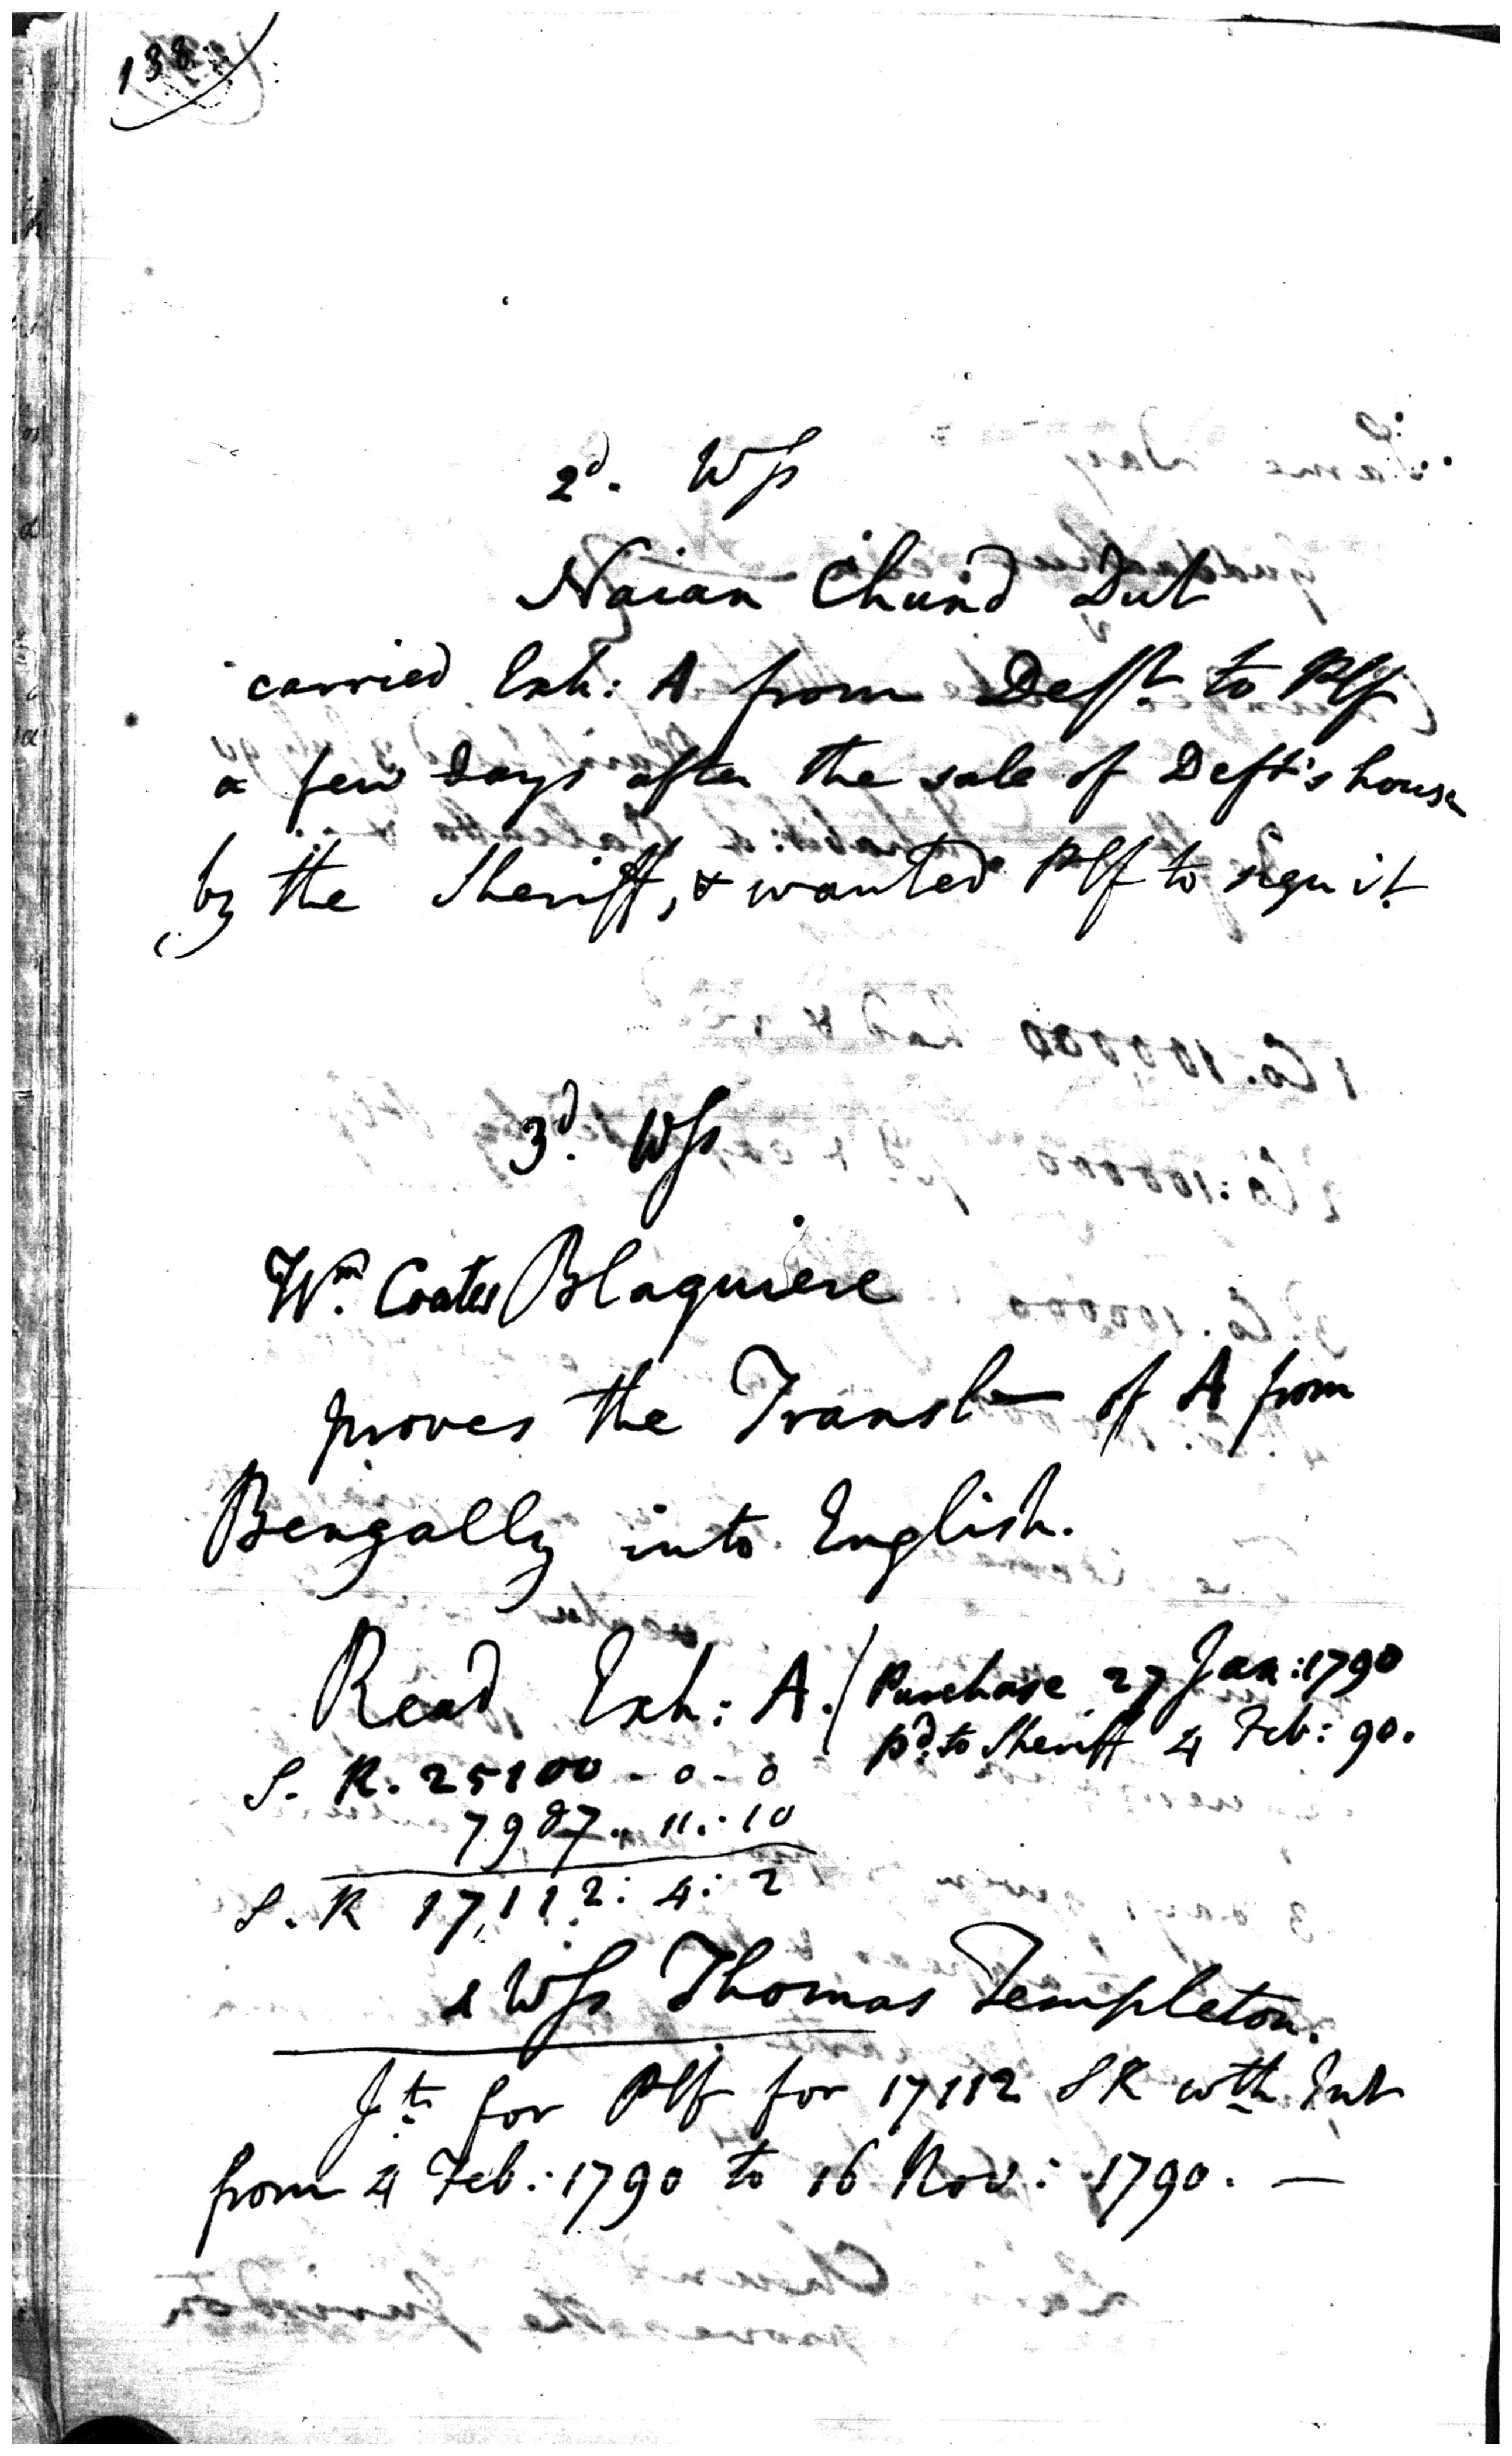 138
2d. Wss
Naian Chund Dut
carried Exh: A from Deft. to Plf
a few days after the sale of Deft's house
by the Sheriff, & wanted Plf to sign it
3d. Wss
Wm. Coates Blaquiere
proves the Transl- of A from
Bengally into English.
Read Exh: A. / Purchase 27 Jan: 1790
pd. to Sheriff 4 Feb: 90.
S. R. 25100 - 0 - 0
7987.. 11.: 10
S. R 17,112: 4: 2
Wss Thomas Templeton.
Jt. for Plf for 17112 SR wth Int
from 4 Feb.: 1790 to 16 Nov: 1790. —